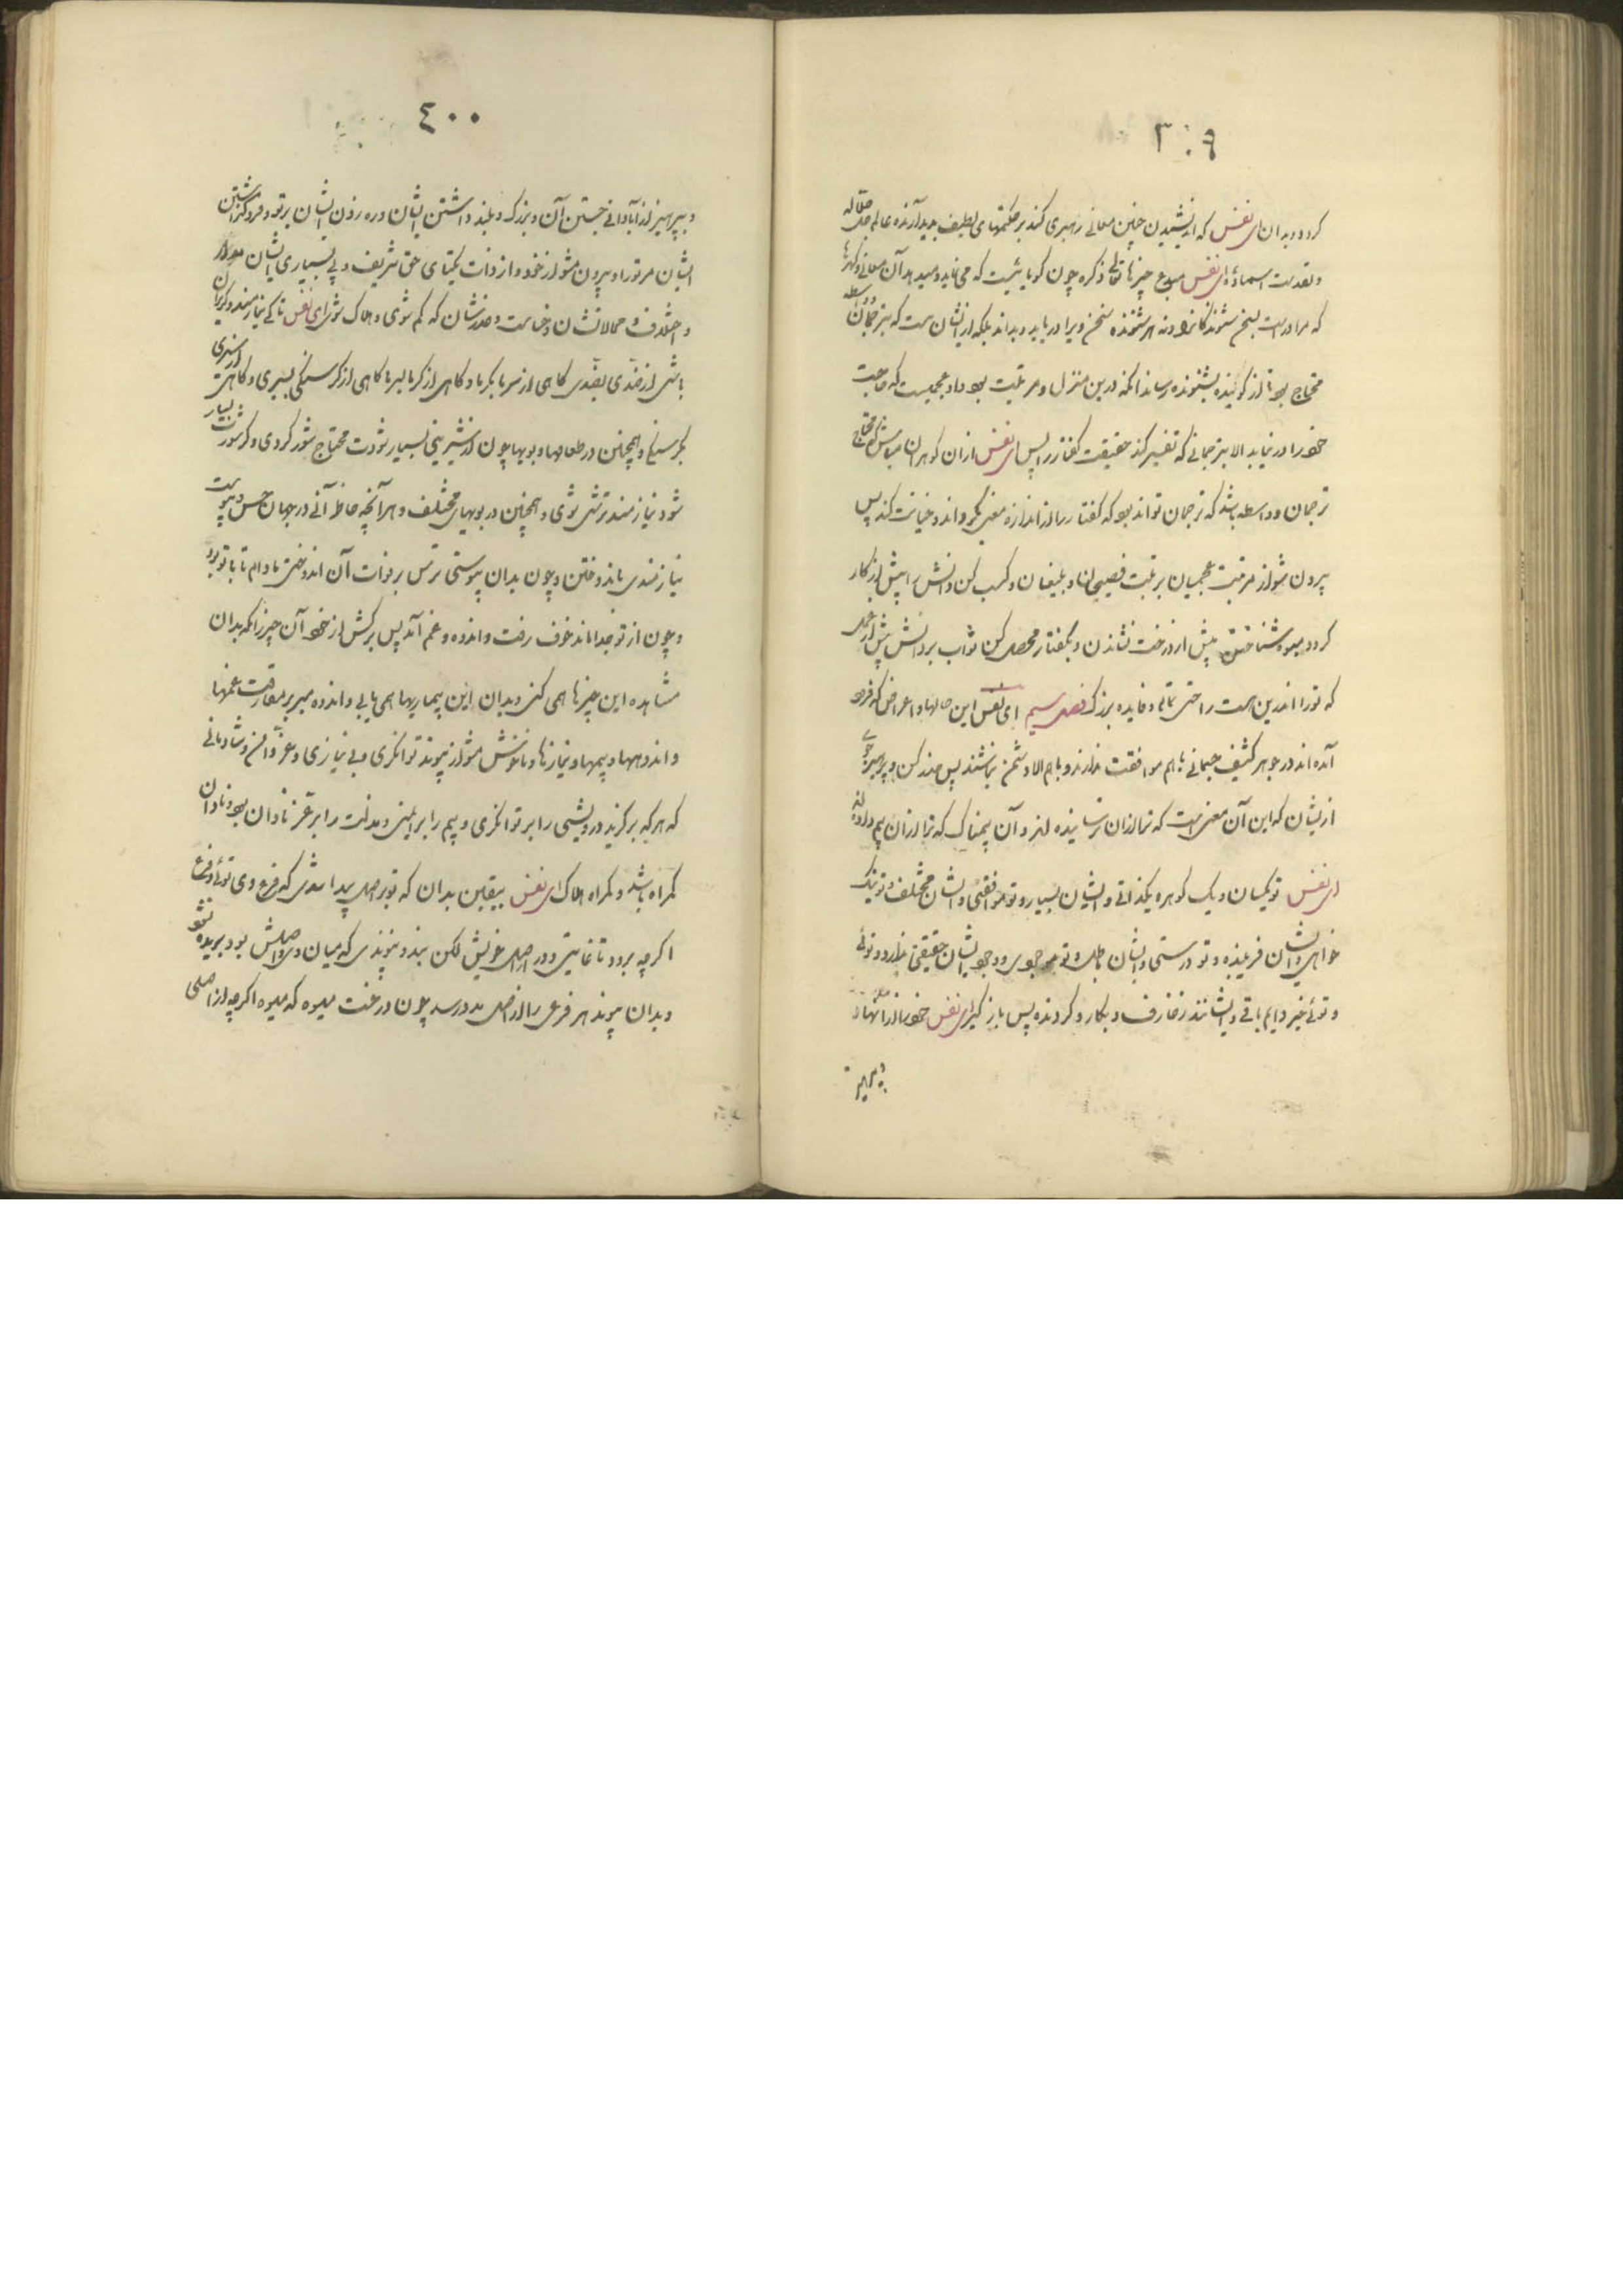 ۳۰۹
کردد و بدان ای نفس که اندیشیدن چنین معانی رهبری کند بر حکمتهای لطیف پدیدآرنده عالم جل جلاله
و تقدست اسماؤه ای نفس مبدع چیزها تعالی ذکره چون کویائیست که می نماید و میدهد آن معانی و کهرها
که مراد است بسخن شنوندکانرا و نه هر شنونده سخن ویرا دریابد و بداند بلکه از ایشان هست که بترجمان و واسطه
محتاج بود تا از کوینده بشنونده رساند انکه درین منزل و مرتبت بود او عجمیست که صاحب
خود را در نیابد الا بترجمانی که تفسیر کند حقیقت کفتار را پس ای نفس ازان کوهران مباش که محتاج
ترجمان و واسطه باشد که ترجمان تواند بود که کفتار را از اندازه معنی بکرداند و خیانت کند پس
بیرون شو از مرتبت عجمیان برتبت فصیحان و بلیغان و کسب کن دانش را پیش از کار
کرد و میوه شناختن پیش از درخت نشاندن و بکفتار محصل کن ثواب بر دانش پیش از عمل
که تو را اندرین هست راحتی تمام و فایده بزرک فصل سیم ای نفس این حالها و اعراض که فرود
آمده اند در جوهر کثیف جسمانی باهم موافقت ندارند و باهم الا دشمن نباشند پس حذر کن و پرهیز جوی
از ایشان که این آن معنی است که ترا ازان ترسانیده اند و آن بیمناک که ترا ازان بیم داده اند
ای نفس تو یکسان و یک کوهر و یکذاتی و ایشان بسیار و تو موافقی و ایشان مختلف و تو نیک
خواهی و ایشان فریبنده و تو درستی و ایشان باطل و تو موجودی و وجود ایشان حقیقتی ندارد و توئی
و توئی خیر دایم باقی و ایشانند زخارف و بکار و کردنده پس باز کیر ای نفس خود را از انهاء
بپرهیز
۴۰۰
و بپرهیز از آبادانی جستن آن و بزرک و بلند داشتن ایشان و ره زدن ایشان بر تو و فرو کذاشتن
ایشان مر تو را و بیرون مشو از خود و از ذات یکتای حق شریف و پی بسیاری ایشان مدار
و اختلاف و محالاتشان و خیانت و غدرشان که کم شوی و هلاک شوی ای نفس تا کی نیازمند و کریزان
باشی از ضدی بضدی کاهی از سرما بکرما و کاهی از کرما بسرما کاهی از کرسنکی بسیری و کاهی از سیری
بکرسنکی و همچنین در طعامها و بویها چون از شیرینی بسیار شودت محتاج شور کردی و کر شورت بسیار
شود نیازمند ترشی شوی و همچنین در بویهای مختلف و هر آنچه حاظر آنی در جهان حس و پیوست
نیازمندی باندوختن و چون بدان پیوستی ترس بر فوات آن اندوختی مادام تا با تو بود
و چون از تو جدا ماند خوف رفت و اندوه و غم آمد پس برکش از خود آن چیز را که بدان
مشاهده این چیزها همی کنی و بدان این بیماریها همی یابی و اندوه مبر بر مفارقت غمها
و اندوهها و بیمها و نیازها و ناخوش مشو از پیوند توانکری و بی نیازی و عز و ایمنی و شادمانی
که هر که برکزید درویشی را بر توانکری و بیم را بر ایمنی و مذلت را بر عز نادان بود و نادان
کمراه باشد و کمراه هلاک ای نفس بیقین بدان که تو بر اصل پیدا شدی که فرع وی توئی و فرع
اکر چه برود تا غایتی دور از اصل خویش لکن بند و پیوندی که میان وی و اصلش بود بریده نشود
و بدان پیوند هر فرعی را از اصل مدد رسد چون درخت میوه که میوه اکر چه از اصلی